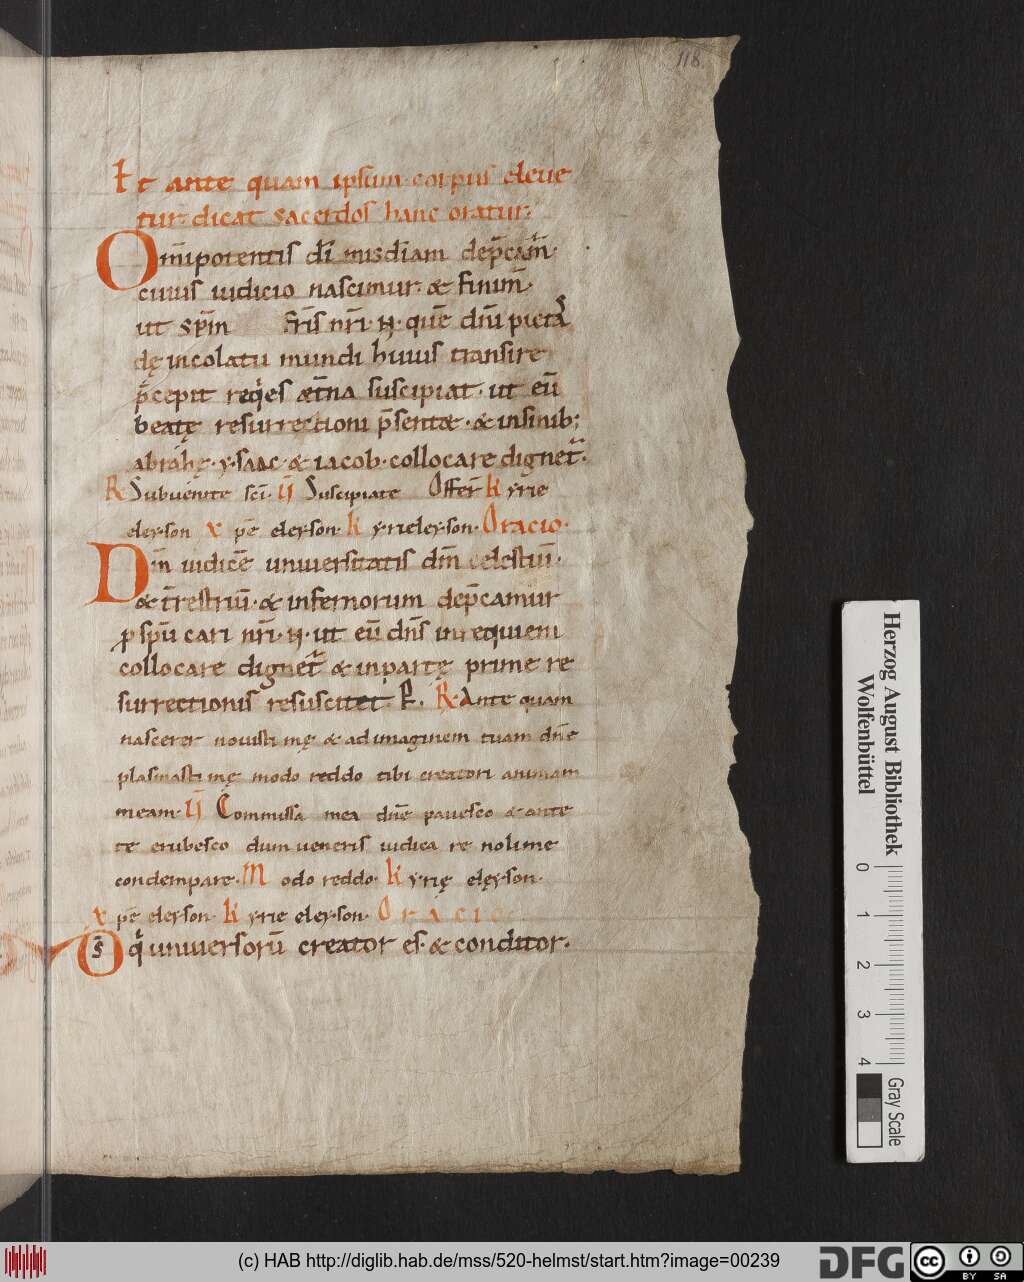 118
Et ante quam ipsum corpus eleue
tur. dicat sacerdos hanc oratur.
Om̄ipotentis dī misdīam dep̄cam̄.
cuius iudicio nascimur. & finim̄.
ut sp̄m fr̄is nr̄i. N. quē dn̄i pieta
dę incolatu mundi huius transire
p̄cepit reqies æt̄na suscipiat. ut eū
beatę resurrectioni p̄sentæ. & insinib;
abrahę. y.saac. & iacob. collocare dignet.
R Subuenite sci. V Suscipiate Offer̄ kyrie
eleyson xpē eleyson. kyrieleyson. Oracio.
Dm̄ iudicē uniuersitatis dm̄ celestiū.
& t̄restriū. & infernorum dep̄camur
p spū cari nr̄i. N. ut eū dn̄s in requiem
collocare dignet & in partę prime re
surrectionis resuscitet P. R. Ante quam
nascerer nouisti mę & ad imaginem tuam dn̄e
plasmasti mę modo reddo tibi creatori animam
meam. V Commissa mea dn̄e pauesco & ante
te erubesco dum ueneris iudica re noli me
condempare. Modo reddo. kyrię elęyson.
xpē eleyson. kyrie eleyson. Oracio
Ds̄ qi uniuersorū creator es. & conditor.
Herzog August Bibliothek
Wolfenbüttel
0 1 2 3 4
Gray Scale
(c) HAB http://diglib.hab.de/mss/520-helmst/start.htm?image=00239
DFG
cc BY SA